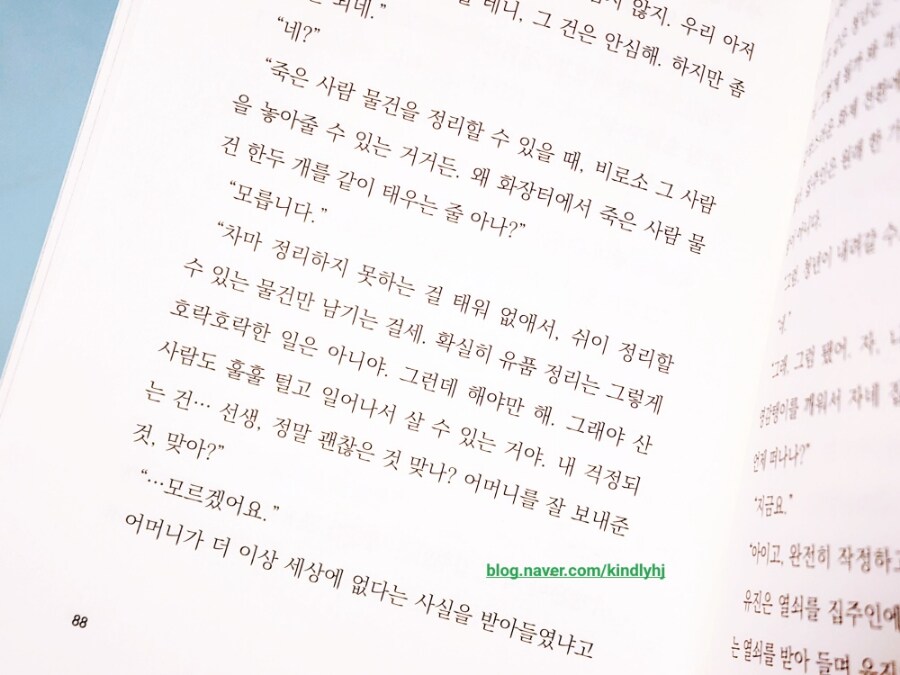 않지. 우리 아저
테니, 그 건은 안심해. 하지만 좀
되네.”
“네?”
“죽은 사람 물건을 정리할 수 있을 때, 비로소 그 사람
을 놓아줄 수 있는 거거든. 왜 화장터에서 죽은 사람 물
건 한두 개를 같이 태우는 줄 아나?”
“모릅니다.”
“차마 정리하지 못하는 걸 태워 없애서, 쉬이 정리할
수 있는 물건만 남기는 걸세. 확실히 유품 정리는 그렇게
호락호락한 일은 아니야. 그런데 해야만 해. 그래야 산
사람도 훌훌 털고 일어나서 살 수 있는 거야. 내 걱정되
는 건… 선생, 정말 괜찮은 것 맞나? 어머니를 잘 보내준
것, 맞아?”
“…모르겠어요.”
어머니가 더 이상 세상에 없다는 사실을 받아들였냐고
88
blog.naver.com/kindlyhj
“그래. 그럼 됐어. 자,
깨워서 자네
언제 떠나나?”
“지금요.”
“아이고, 완전히 작정하고
유진은 열쇠를 집주인에
는 열쇠를 받아 들며 유진